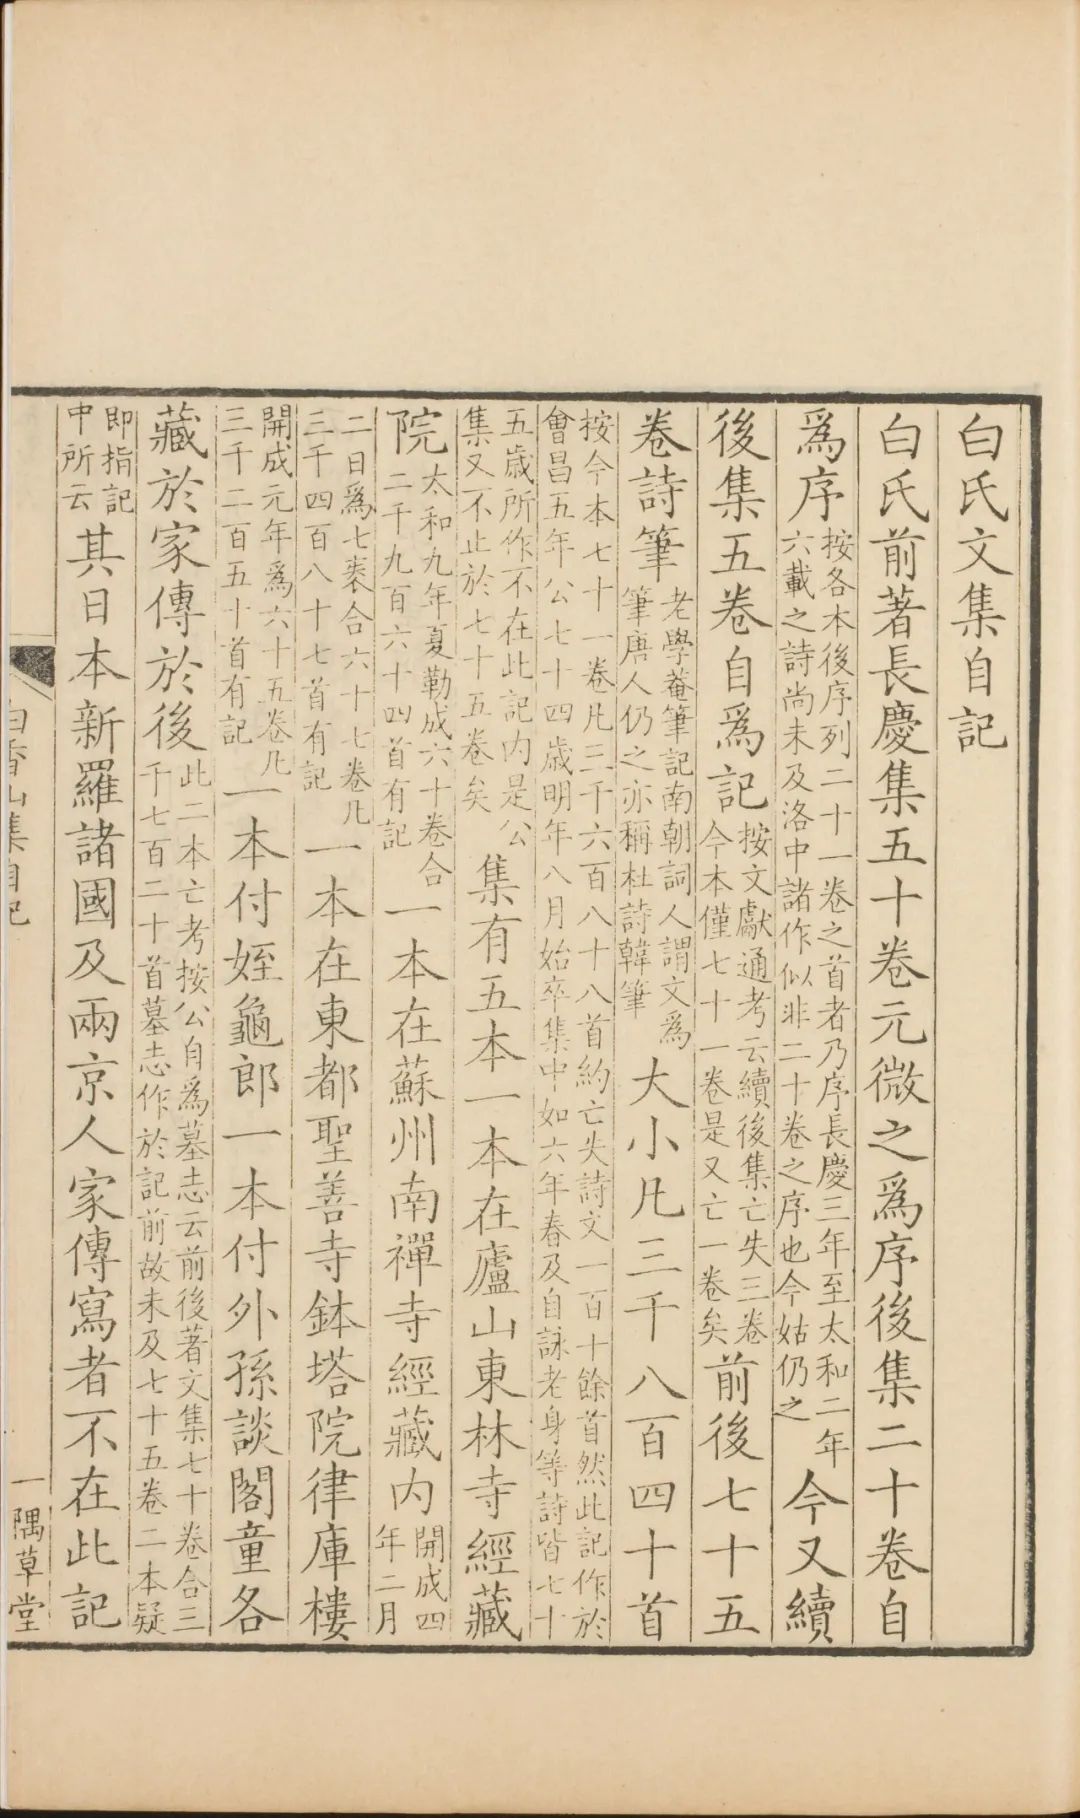 白氏文集自記
白氏前著長慶集五十卷元微之爲序後集二十卷自
爲序按各本後序列二十一卷之首者乃序長慶三年至太和二年六載之詩尚未及洛中諸作似非二十卷之序也今姑仍之今又續
後集五卷自爲記按文獻通考云續後集亡失三卷今本僅七十一卷是又亡一卷矣前後七十五
卷詩筆老學菴筆記南朝詞人謂文爲筆唐人仍之亦稱杜詩韓筆大小凡三千八百四十首
按今本七十一卷凡三千六百八十八首約亡失詩文一百十餘首然此記作於會昌五年公七十四歲明年八月始卒集中如六年春及自詠老身等詩皆七十
五歲所作不在此記内是公集又不止於七十五卷矣集有五本一本在廬山東林寺經藏
院太和九年夏勒成六十卷合二千九百六十四首有記一本在蘇州南禪寺經藏内開成四年二月
二日爲七袠合六十七卷凡三千四百八十七首有記一本在東都聖善寺鉢塔院律庫樓
開成元年爲六十五卷凡三千二百五十首有記一本付姪龜郎一本付外孫談閣童各
藏於家傳於後此二本亡考按公自爲墓志云前後著文集七十卷合三千七百二十首墓志作於記前故未及七十五卷二本疑
即指記中所云其日本新羅諸國及兩京人家傳寫者不在此記
白香山集自記
一隅草堂